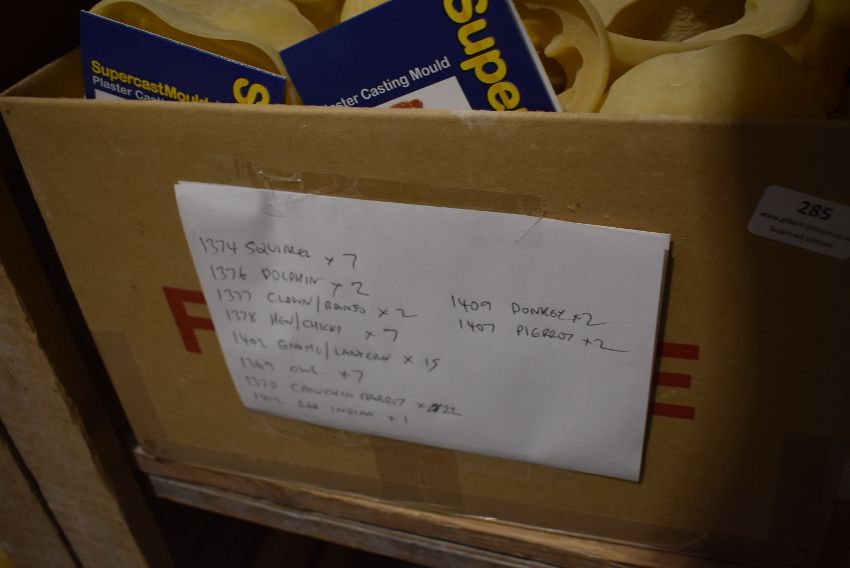 SupercastMould
Plaster Casting
S
Supe
Plaster Casting Mould
285
Supercast Limited
1374 SQUIRREL x 7
1376 DOLPHIN x 2
1377 CLOWN/BANJO x 2
1378 HEN/CHICKS x 7
1402 GNOME/LANTERN x 15
1369 OWL x 7
1370 CROUCHIN RABBIT x 22
1412 RED INDIAN x 1
1409 DONKEY x 2
1407 PIERROT x 2
F
E